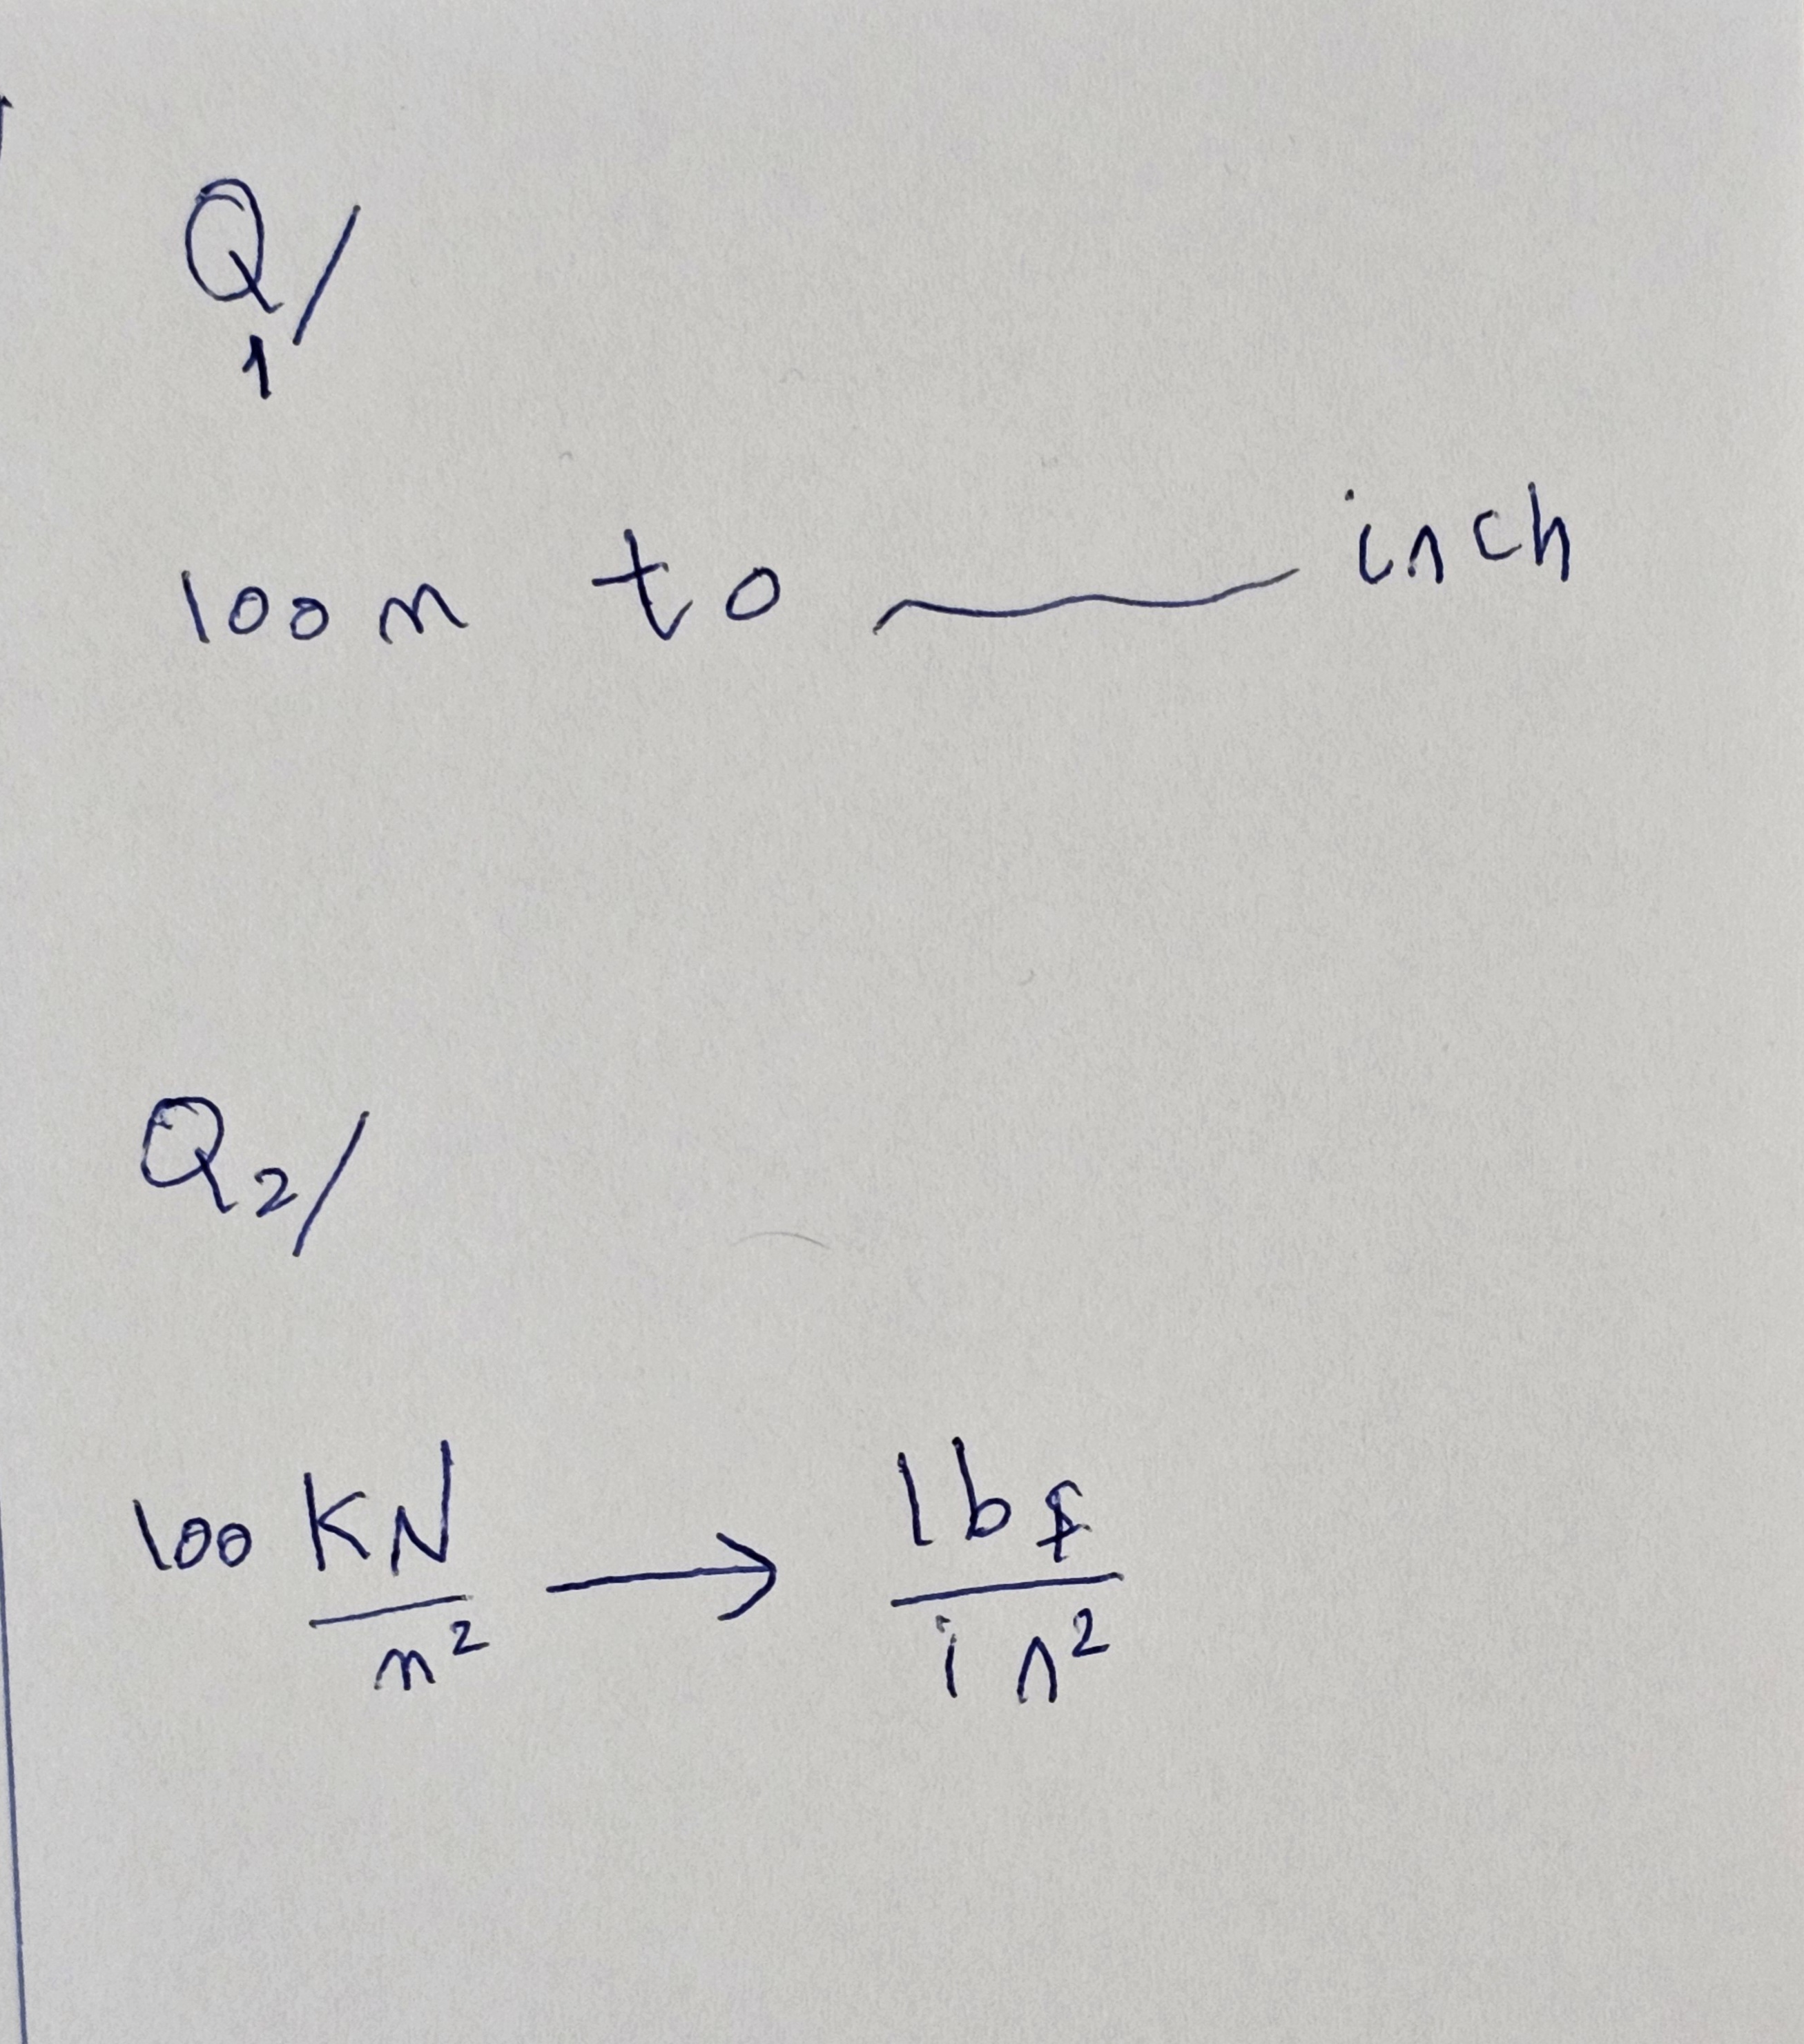 Q/
1
100 m to ____ inch
Q2/
100 KN/m² → lbf/in²